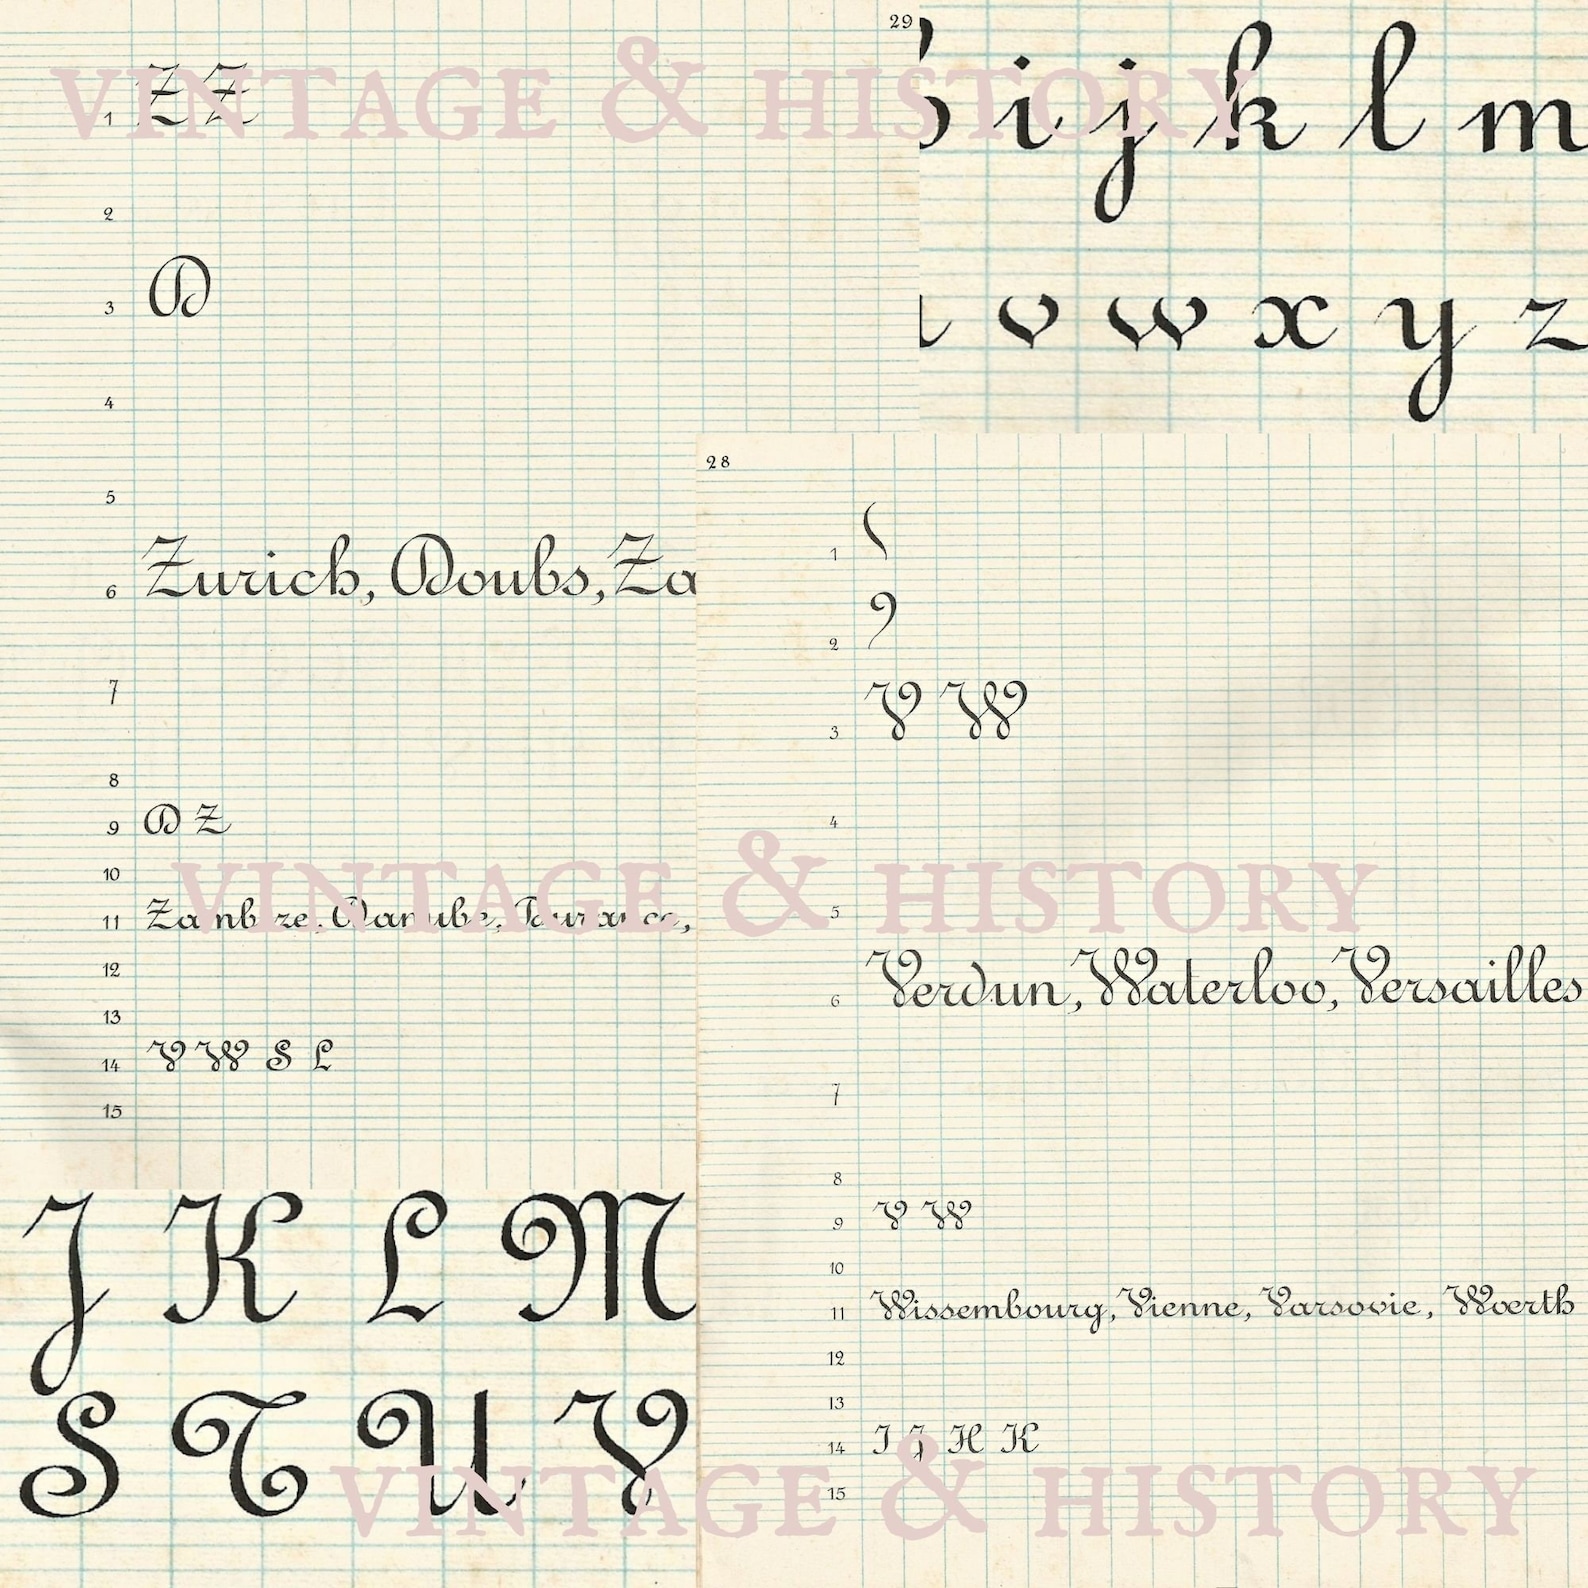 29
1 Z Z
2
3 D
4
5
6 Zurich, Doubs, Za
7
8
9 D Z
10
11 Zambèze, Danube,
12
13
14 V W S L
15
i j k l m
v w x y z
28
1
2
3 V W
4
5
6 Verdun, Waterloo, Versailles
7
8
9 V W
10
11 Wissembourg, Vienne, Varsovie, Woerth
12
13
14 I J H K
15
J K L M
S T U V
VINTAGE & HISTORY
VINTAGE & HISTORY
VINTAGE & HISTORY